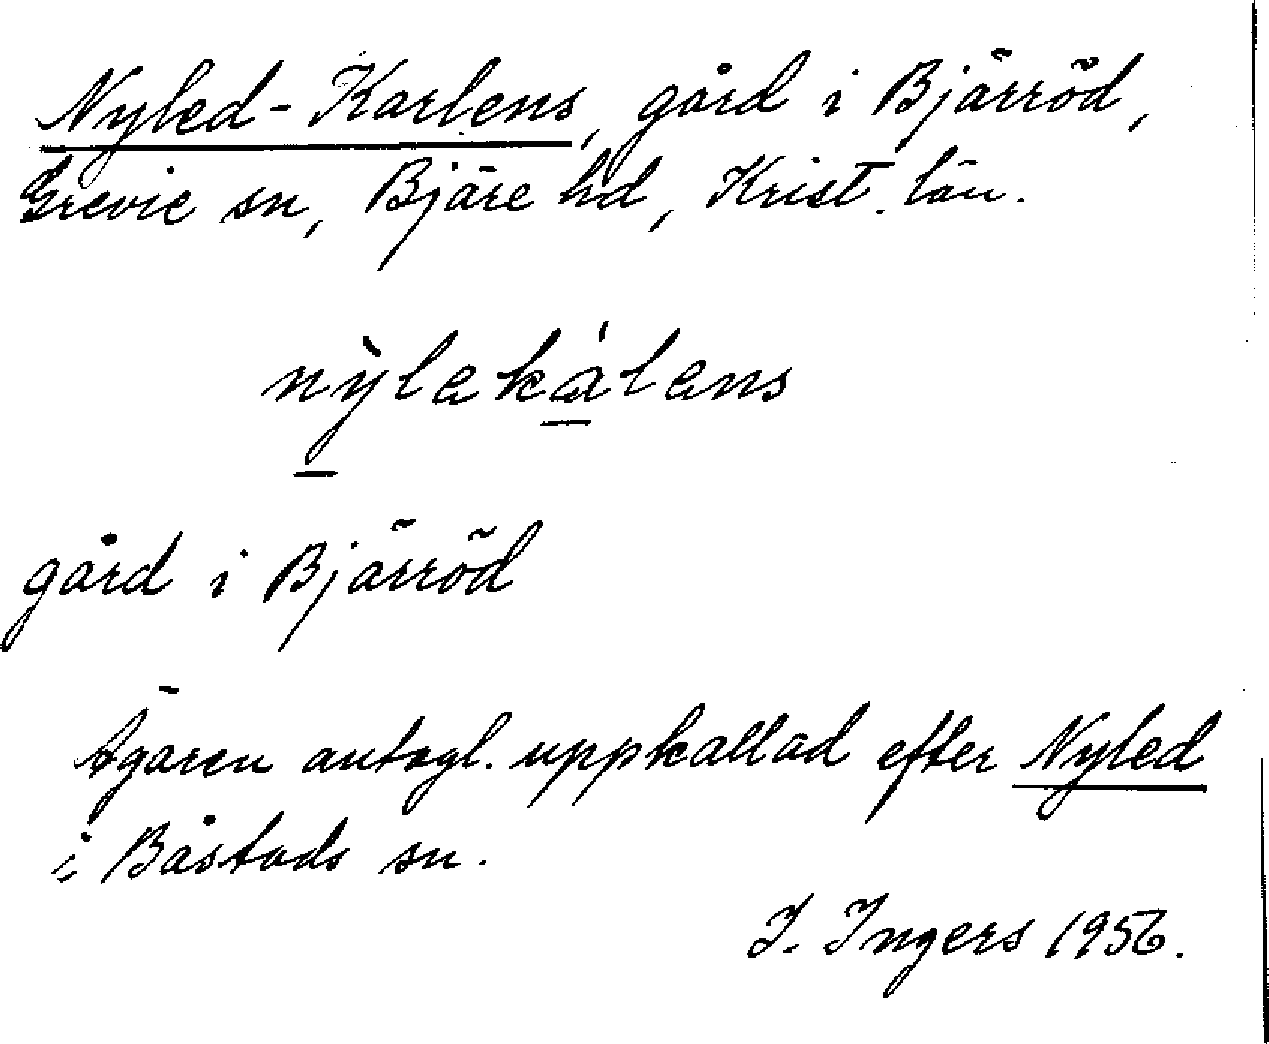 Nyled-Karlens, gård i Bjärröd,
Grevie sn, Bjäre hd, Krist. län.
nỳlekálens
gård i Bjärröd
Ägaren antagl. uppkallad efter Nyled
i Båstads sn.
I. Ingers 1956.